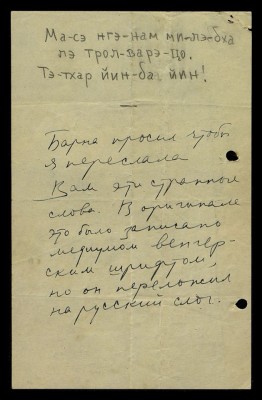 Ма-сэ нгэ-нам ми-лэ-бха
лэ трол-варэ-цо.
Тэ-тхар йин-ба йин!
Барна просил чтобы
я переслала
Вам эти странные
слова. В оригинале
это было записано
медиумом венгер-
ским шрифтом,
но он переложил
на русский слог.